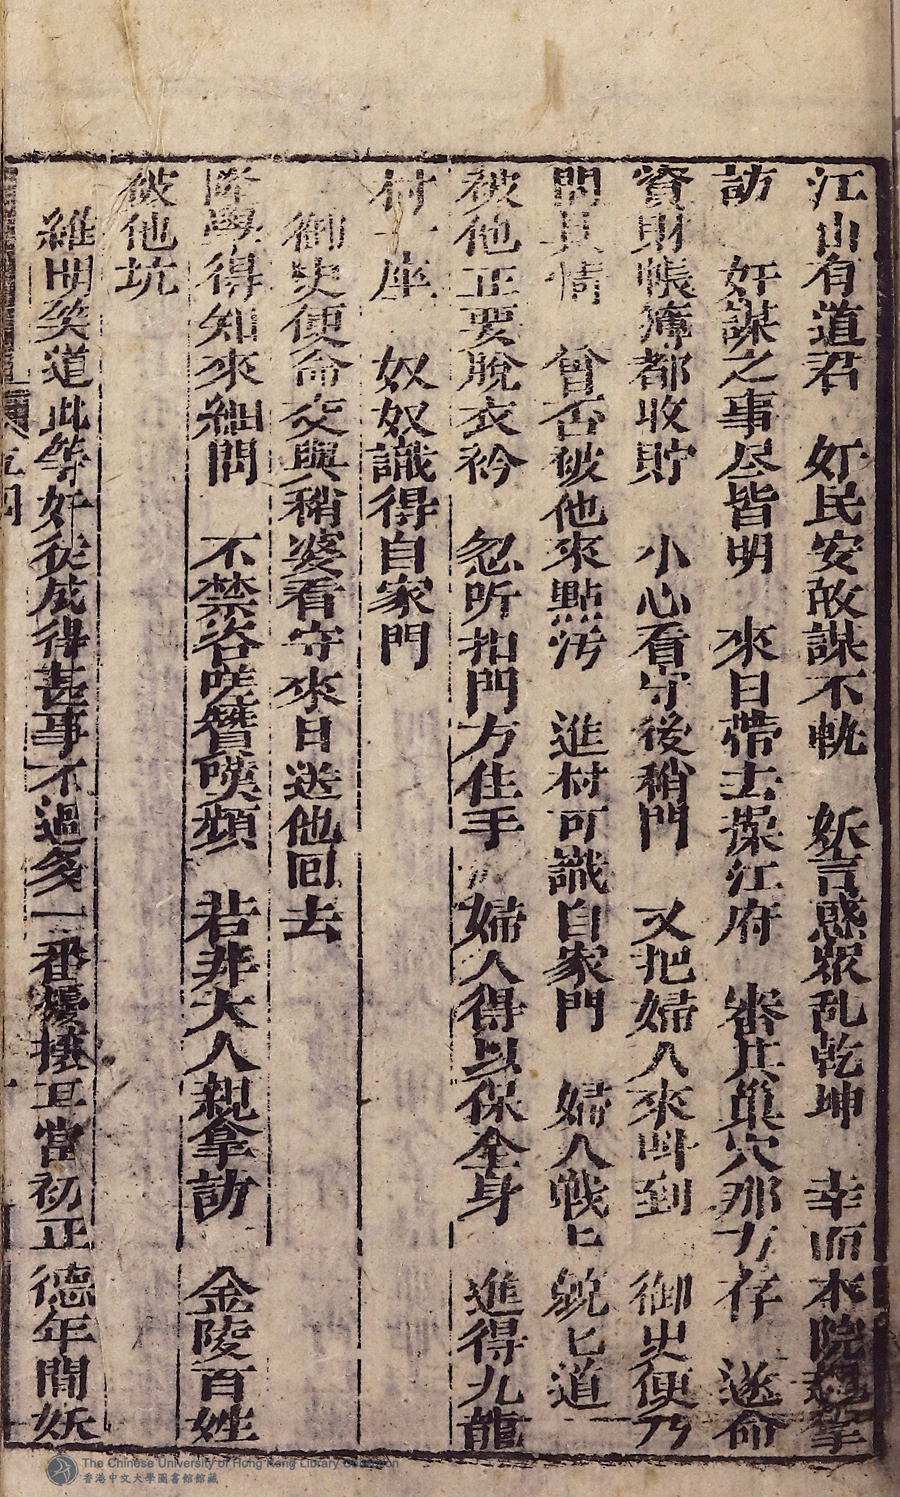 江山有道君　奸民安敢謀不軌　妖言惑眾乱乾坤　幸而本院親拿
訪　奸謀之事尽皆明　來日帶去操江府　審其巢穴那方存　遂命
資財帳簿都收貯　小心看守後稍門　又把婦人來呌到　御史便乃
問其情　曾否被他來點污　進村可識自家門　婦人戰匕兢匕道
被他正要脫衣衿　忽听扣門方住手　婦人得以保全身　進得九龍
村一座　奴奴識得自家門
御史便命交與稍婆看守來日送他回去
隆學得知來細問　不禁咨嗟贊嘆頻　若非大人親拿訪　金陵百姓
被他坑
維明笑道此等奸徒成得甚事不過多一番擾攘耳當初正德年間妖
The Chinese University of Hong Kong Library Collection
香港中文大學圖書館館藏